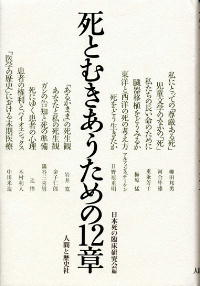 死とむきあうための12章
日本死の臨床研究会編
人間と歴史社
私にとっての「尊厳ある死」 柳田邦男
児童文学のなかの“死” 河合隼雄
私たちの長い命のために 重兼芳子
臓器移植をどうみるか 梅原 猛
東洋と西洋の死の考え方 アルフォンス・デーケン
死をどう生きたか 日野原重明
「あるがまま」の死生観 岩井 寛
あなたと私の死生観
ガンの告知と死の準備 隅谷三喜男
死にゆく患者の心理 辻 悟
患者の権利とバイオエシックス 木村利人
「医学の歴史」における末期医療 中川米造